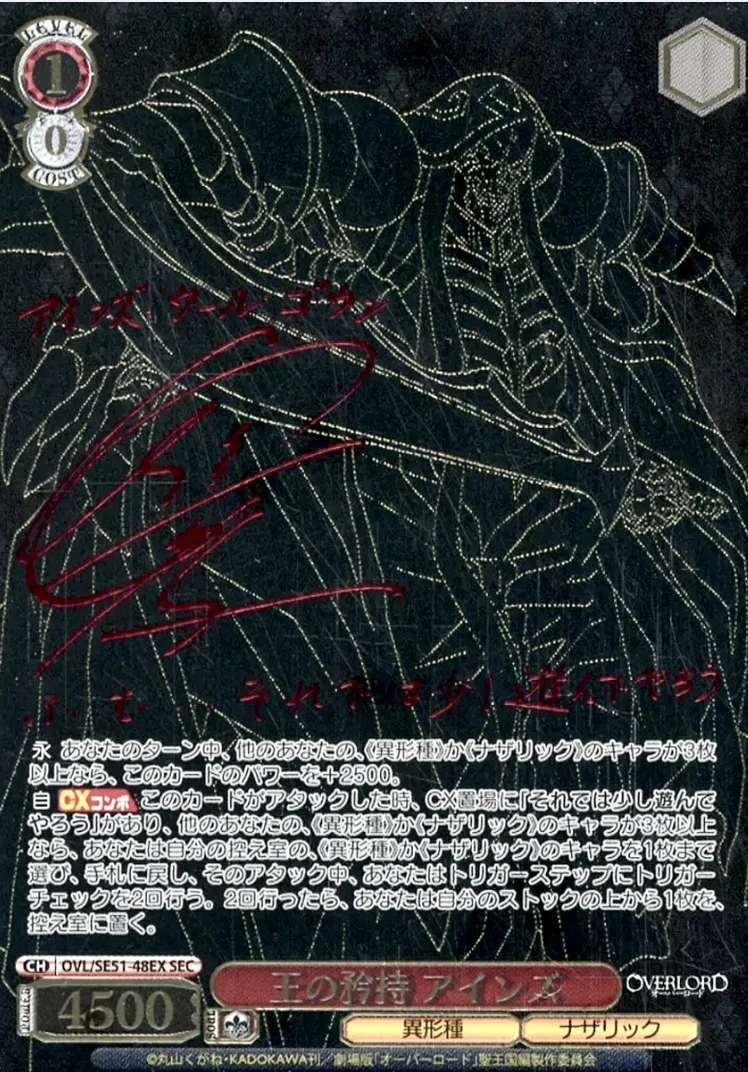 LEVEL
1
0
COST
アインズ・ウール・ゴウン
ふむ...それでは少し遊んでやろう
永 あなたのターン中、他のあなたの、《異形種》か《ナザリック》のキャラが3枚
以上なら、このカードのパワーを+2500。
自 CXコンボ このカードがアタックした時、CX置場に「それでは少し遊んで
やろう」があり、他のあなたの、《異形種》か《ナザリック》のキャラが3枚以上
なら、あなたは自分の控え室の、《異形種》か《ナザリック》のキャラを1枚まで
選び、手札に戻し、そのアタック中、あなたはトリガーステップにトリガー
チェックを2回行う。2回行ったら、あなたは自分のストックの上から1枚を、
控え室に置く。
CH OVL/SE51-48EX SEC
王の矜持 アインズ
OVERLORD
オーバーロード
POWER
4500
SOUL
異形種
ナザリック
©丸山くがね・KADOKAWA刊/劇場版「オーバーロード」聖王国編製作委員会